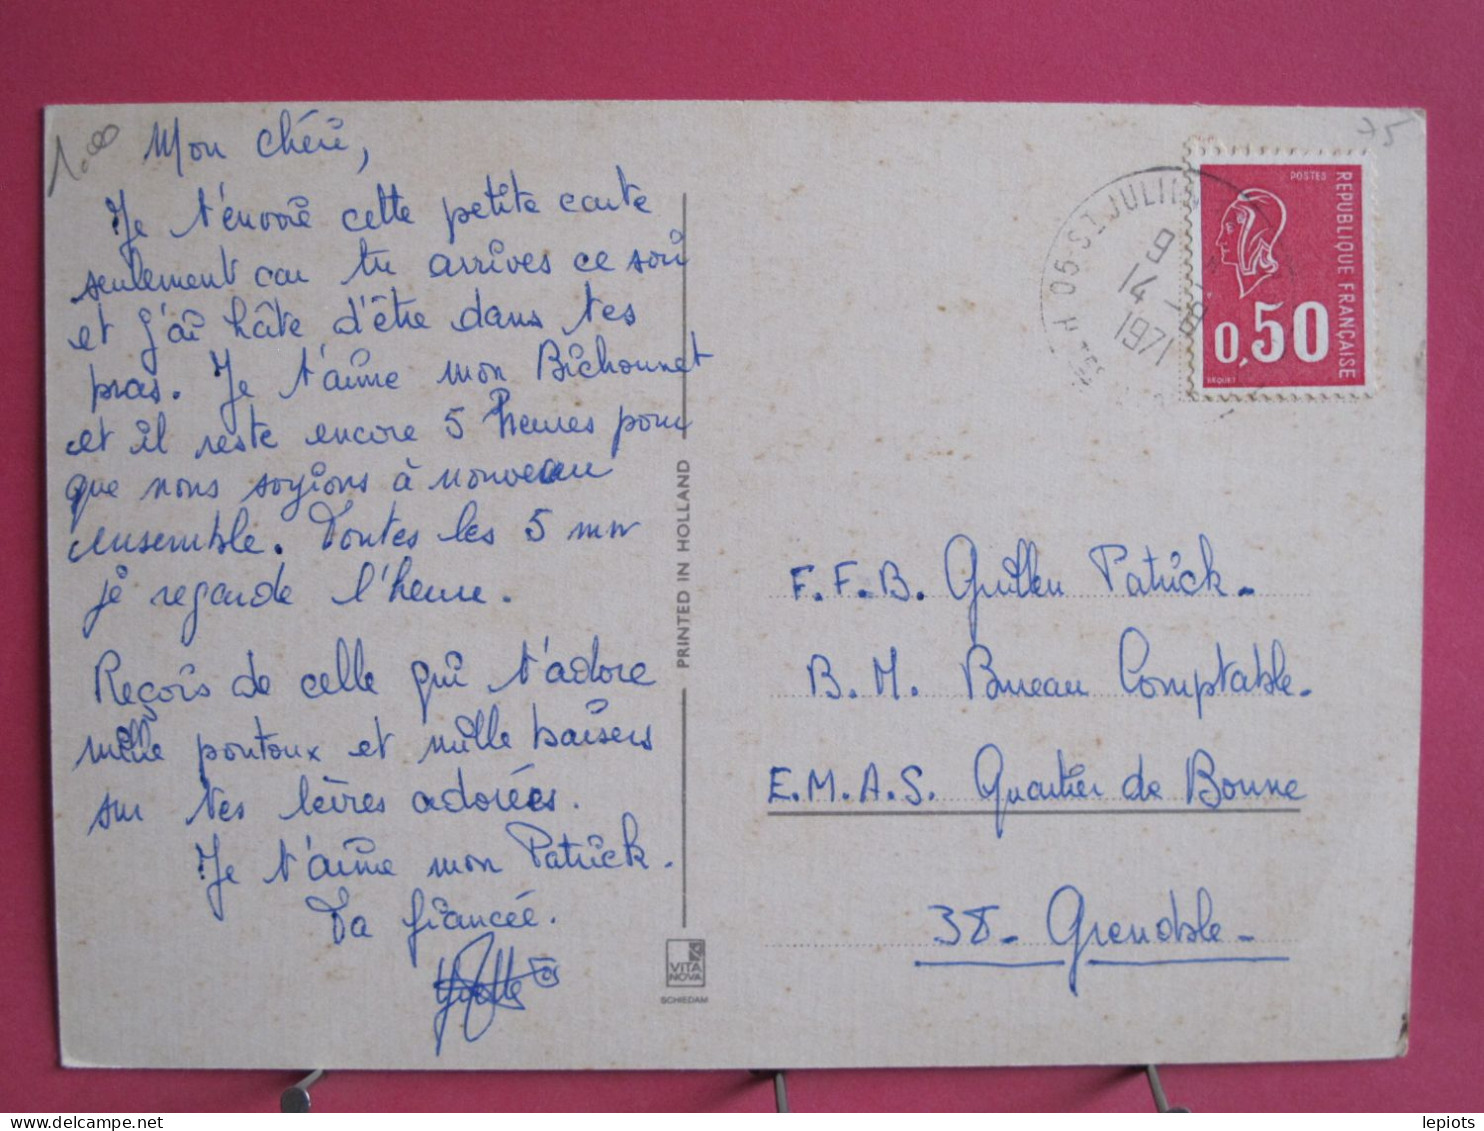 1.00
75
Mon chéri,
Je t'envoie cette petite carte
seulement car tu arrives ce soir
et j'ai hâte d'être dans tes
bras. Je t'aime mon Bichounet
et il reste encore 5 heures pour
que nous soyions à nouveau
ensemble. Toutes les 5 mn
je regarde l'heure.
Reçois de celle qui t'adore
mille poutoux et mille baisers
sur tes lèvres adorées.
Je t'aime mon Patrick.
Ta fiancée.
Yvette
PRINTED IN HOLLAND
VITA
NOVA
SCHIEDAM
05-ST JULIEN
9 H
14 -8
1971
POSTES
REPUBLIQUE FRANÇAISE
0,50
BEQUET
F.F.B. Guillen Patrick-
B.M. Bureau Comptable-
E.M.A.S. Quartier de Bonne
38- Grenoble-
lepiots
delcampe.net